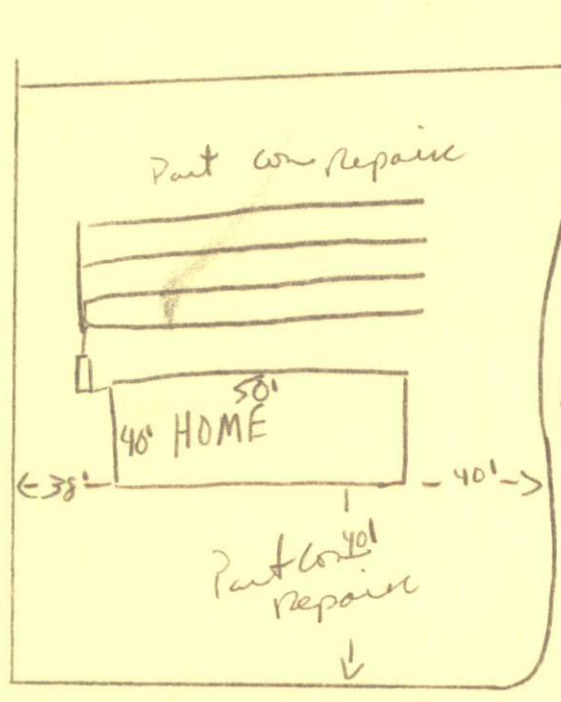 Part con Repair
50'
40' HOME
38'
40'
40'
Part con
Repair